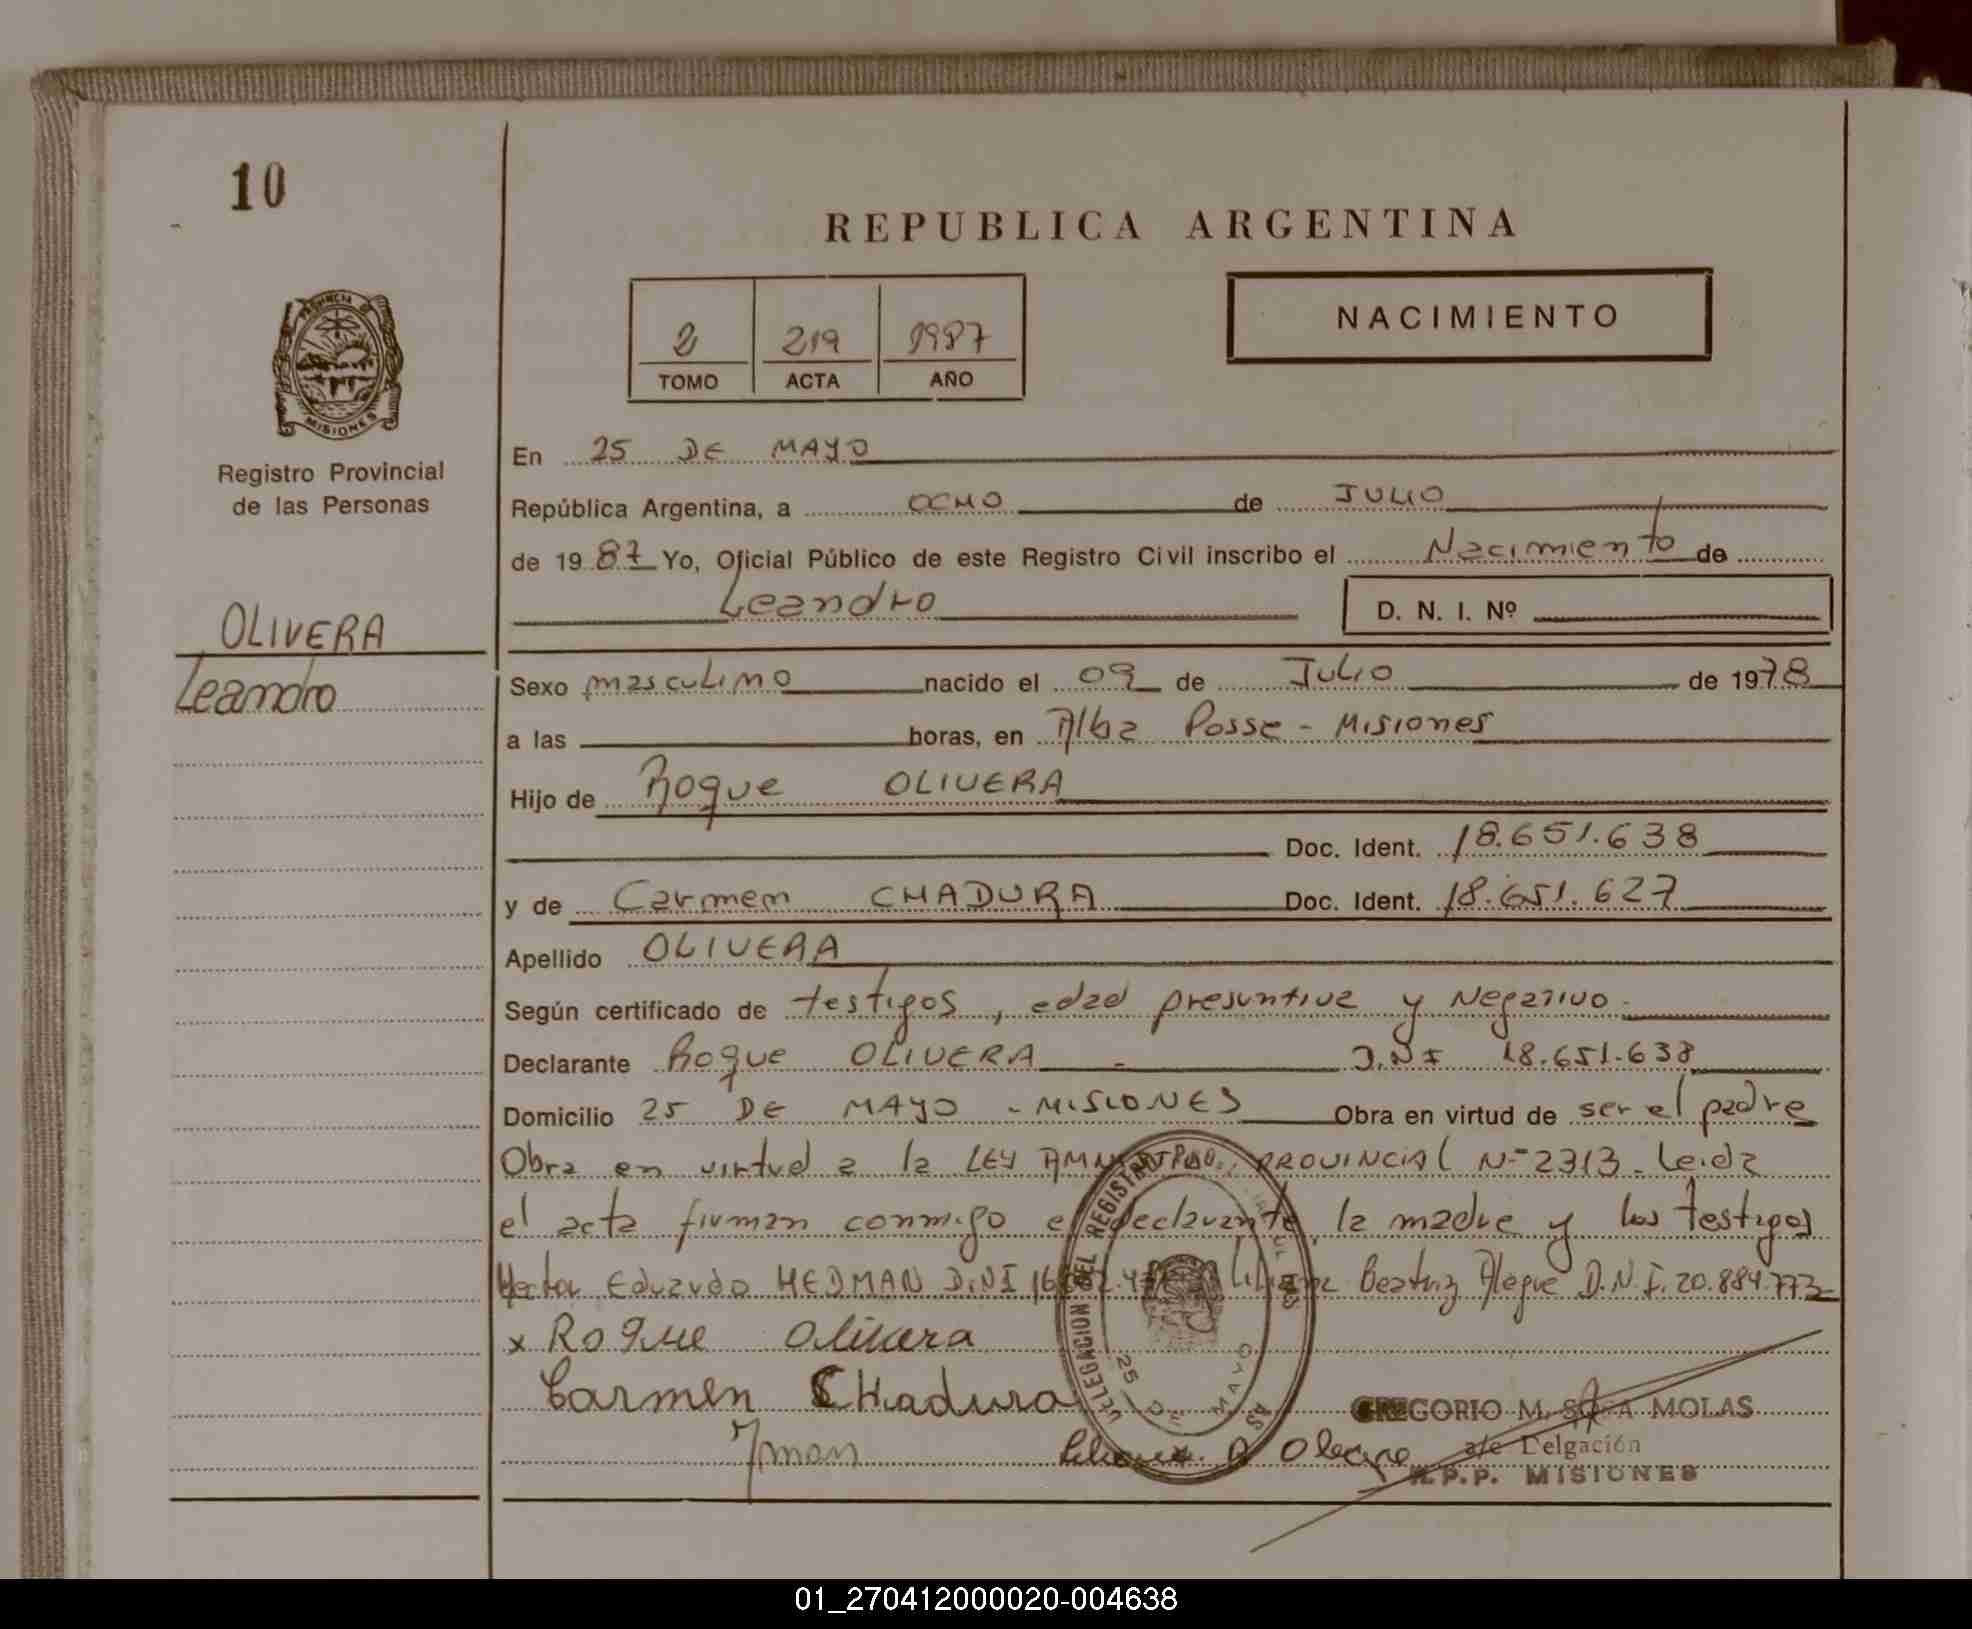 10
REPUBLICA ARGENTINA
2 219 1987
TOMO ACTA AÑO
NACIMIENTO
PROVINCIA DE
MISIONES
Registro Provincial
de las Personas
OLIVERA
Leandro
En 25 DE MAYO
República Argentina, a OCHO de JULIO
de 19 87 Yo, Oficial Público de este Registro Civil inscribo el Nacimiento de
Leandro D. N. I. Nº
Sexo masculino nacido el 09 de Julio de 1978
a las horas, en Alba Posse - Misiones
Hijo de Roque OLIVERA
Doc. Ident. 18.651.638
y de Carmen CHADURA Doc. Ident. 18.651.627
Apellido OLIVERA
Según certificado de testigos, edad presuntiva y Negativo.
Declarante Roque OLIVERA - D.N.I 18.651.638
Domicilio 25 DE MAYO - MISIONES Obra en virtud de ser el padre
Obra en virtud a la LEY PROVINCIAL Nº 2313. Leida
el acta firman conmigo el declarante, la madre y los testigos
Hector Eduardo HEDMAN D.N.I Liliana Beatriz Alegre D.N.I. 20.884.773
x Roque Olivera
Carmen CHadura
DELEGACION DEL REGISTRO
25 DE MAYO
GREGORIO M. SOSA MOLAS
a/c Delgación
R.P.P. MISIONES
01_270412000020-004638